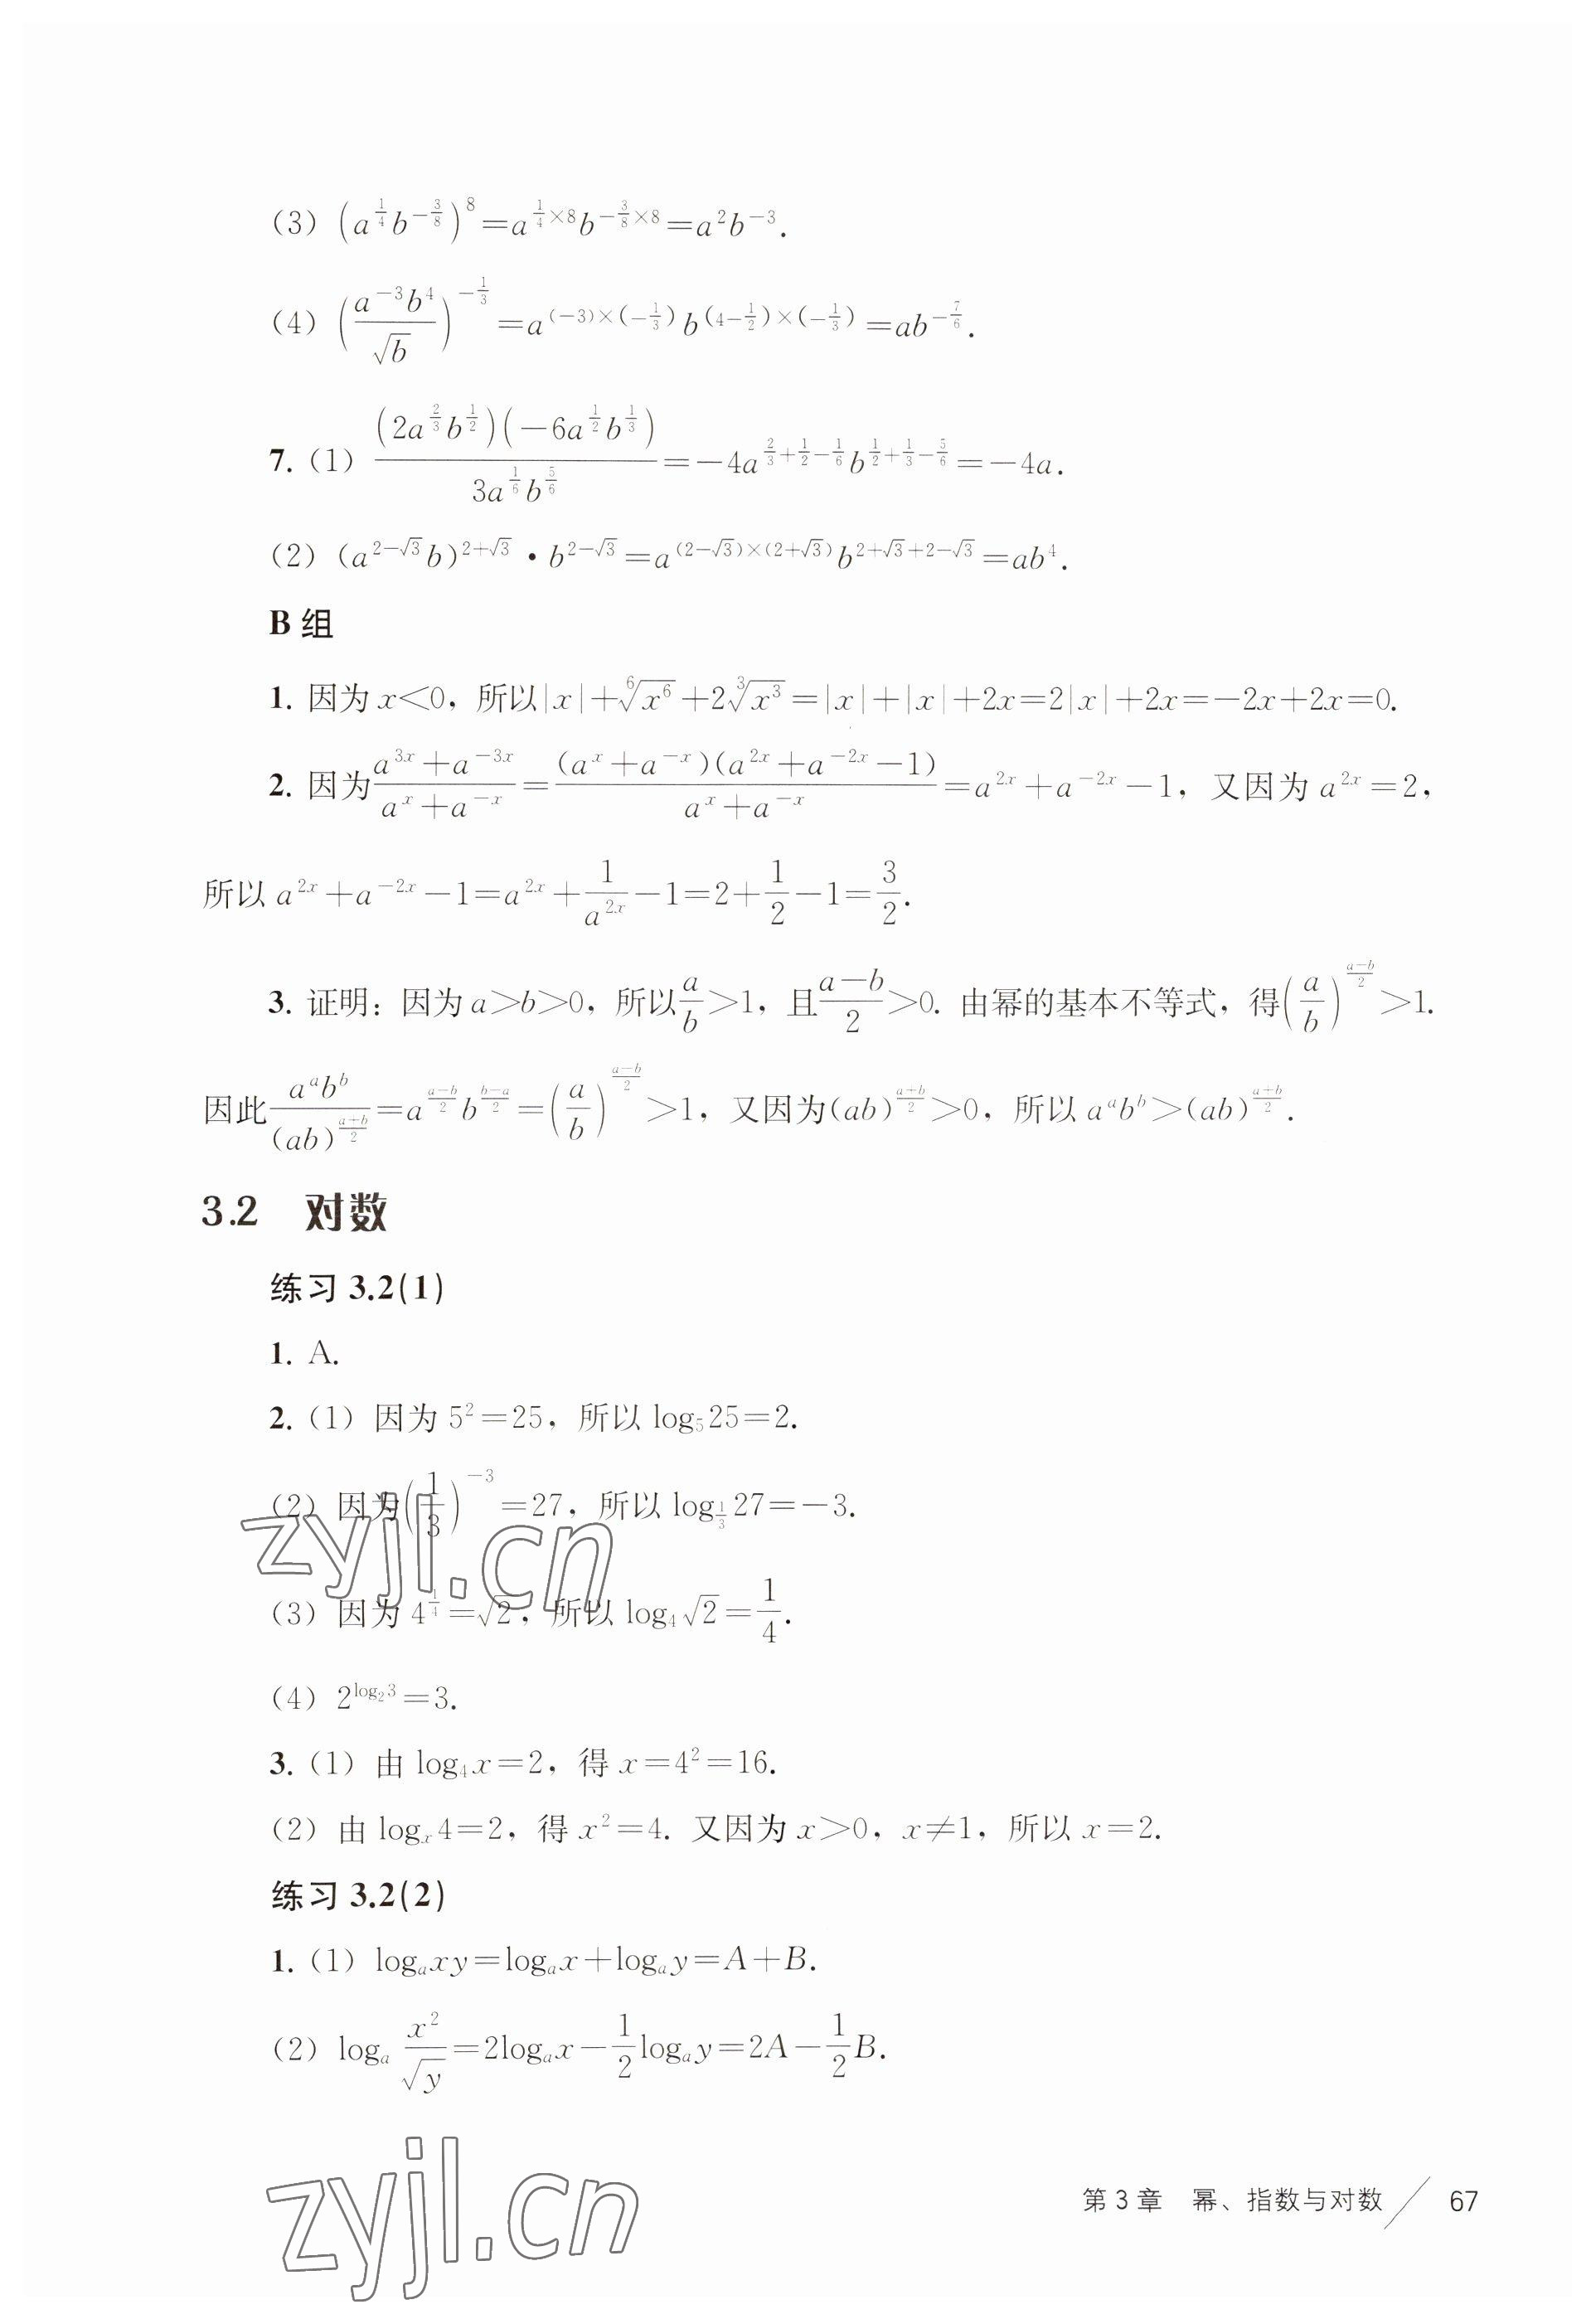 (3) $\left(a^{\frac{1}{4}}b^{-\frac{3}{8}}\right)^8=a^{\frac{1}{4}\times 8}b^{-\frac{3}{8}\times 8}=a^2b^{-3}$.
(4) $\left(\dfrac{a^{-3}b^4}{\sqrt{b}}\right)^{-\frac{1}{3}}=a^{(-3)\times(-\frac{1}{3})}b^{(4-\frac{1}{2})\times(-\frac{1}{3})}=ab^{-\frac{7}{6}}$.
7. (1) $\dfrac{\left(2a^{\frac{2}{3}}b^{\frac{1}{2}}\right)\left(-6a^{\frac{1}{2}}b^{\frac{1}{3}}\right)}{3a^{\frac{1}{6}}b^{\frac{5}{6}}}=-4a^{\frac{2}{3}+\frac{1}{2}-\frac{1}{6}}b^{\frac{1}{2}+\frac{1}{3}-\frac{5}{6}}=-4a$.
(2) $(a^{2-\sqrt{3}}b)^{2+\sqrt{3}}\cdot b^{2-\sqrt{3}}=a^{(2-\sqrt{3})\times(2+\sqrt{3})}b^{2+\sqrt{3}+2-\sqrt{3}}=ab^4$.
B 组
1. 因为 $x<0$，所以$|x|+\sqrt[6]{x^6}+2\sqrt[3]{x^3}=|x|+|x|+2x=2|x|+2x=-2x+2x=0$.
2. 因为$\dfrac{a^{3x}+a^{-3x}}{a^x+a^{-x}}=\dfrac{(a^x+a^{-x})(a^{2x}+a^{-2x}-1)}{a^x+a^{-x}}=a^{2x}+a^{-2x}-1$，又因为 $a^{2x}=2$，
所以 $a^{2x}+a^{-2x}-1=a^{2x}+\dfrac{1}{a^{2x}}-1=2+\dfrac{1}{2}-1=\dfrac{3}{2}$.
3. 证明：因为 $a>b>0$，所以$\dfrac{a}{b}>1$，且$\dfrac{a-b}{2}>0$. 由幂的基本不等式，得$\left(\dfrac{a}{b}\right)^{\frac{a-b}{2}}>1$.
因此$\dfrac{a^ab^b}{(ab)^{\frac{a+b}{2}}}=a^{\frac{a-b}{2}}b^{\frac{b-a}{2}}=\left(\dfrac{a}{b}\right)^{\frac{a-b}{2}}>1$，又因为$(ab)^{\frac{a+b}{2}}>0$，所以 $a^ab^b>(ab)^{\frac{a+b}{2}}$.
3.2 对数
练习 3.2(1)
1. A.
2. (1) 因为 $5^2=25$，所以 $\log_5 25=2$.
(2) 因为$\left(\dfrac{1}{3}\right)^{-3}=27$，所以 $\log_{\frac{1}{3}}27=-3$.
(3) 因为 $4^{\frac{1}{4}}=\sqrt{2}$，所以 $\log_4\sqrt{2}=\dfrac{1}{4}$.
(4) $2^{\log_2 3}=3$.
3. (1) 由 $\log_4 x=2$，得 $x=4^2=16$.
(2) 由 $\log_x 4=2$，得 $x^2=4$. 又因为 $x>0$，$x\neq 1$，所以 $x=2$.
练习 3.2(2)
1. (1) $\log_a xy=\log_a x+\log_a y=A+B$.
(2) $\log_a\dfrac{x^2}{\sqrt{y}}=2\log_a x-\dfrac{1}{2}\log_a y=2A-\dfrac{1}{2}B$.
第 3 章 幂、指数与对数 / 67
zyjl.cn
zyjl.cn